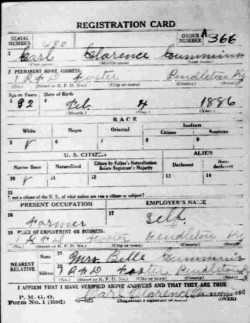 REGISTRATION CARD
SERIAL NUMBER 680 ORDER NUMBER A366
1 Earl Clarence Cummins
2 PERMANENT HOME ADDRESS:
R F D Foster Pendleton Ky
(No.) (Street or R. F. D. No.) (City or town) (County) (State)
Age in Years Date of Birth
32 Feb. 4 1886
(Month.) (Day.) (Year.)
RACE
White Negro Oriental Indian
Citizen Noncitizen
5 6 7 8 9
U. S. CITIZEN ALIEN
Native Born Naturalized Citizen by Father's Naturalization Before Registrant's Majority Declarant Non-declarant
10 11 12 13 14
15 If not a citizen of the U. S., of what nation are you a citizen or subject?
PRESENT OCCUPATION EMPLOYER'S NAME
16 Farmer 17 Self
18 PLACE OF EMPLOYMENT OR BUSINESS:
R F D Foster Pendleton Ky
(No.) (Street or R. F. D. No.) (City or town) (County) (State)
NEAREST RELATIVE
Name 19 Mrs Belle Cummins
Address 20 R F D Foster Pendleton Ky
(No.) (Street or R. F. D. No.) (City or town) (County) (State)
I AFFIRM THAT I HAVE VERIFIED ABOVE ANSWERS AND THAT THEY ARE TRUE
P. M. G. O.
Form No. 1 (Red) Earl Clarence Cummins
(OVER)